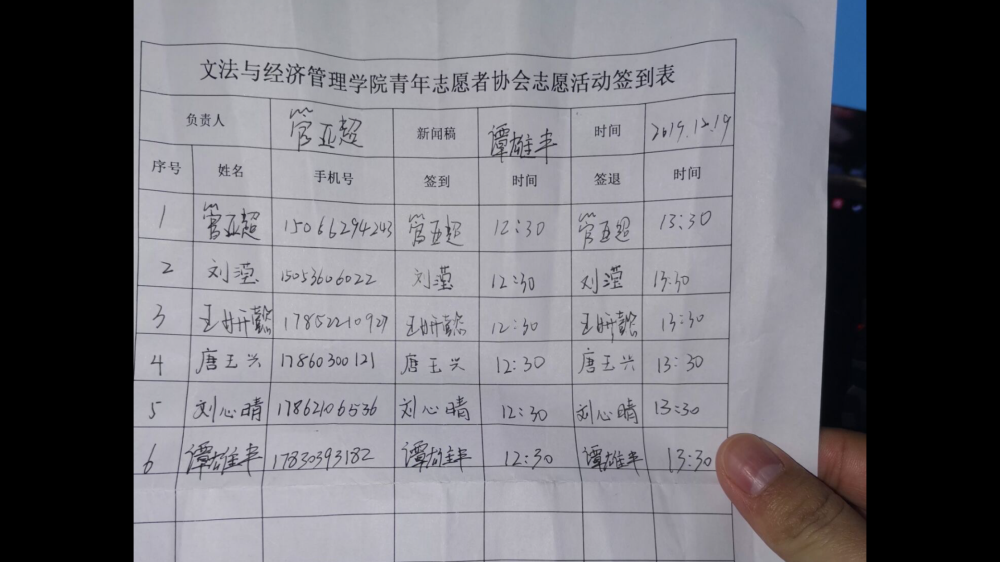 文法与经济管理学院青年志愿者协会志愿活动签到表
负责人 管亚超 新闻稿 谭雄丰 时间 2019.12.19
序号 姓名 手机号 签到 时间 签退 时间
1 管亚超 15066294243 管亚超 12:30 管亚超 13:30
2 刘滢 15053606022 刘滢 12:30 刘滢 13:30
3 王妍懿 17852210927 王妍懿 12:30 王妍懿 13:30
4 唐玉兴 17860300121 唐玉兴 12:30 唐玉兴 13:30
5 刘心晴 17862106536 刘心晴 12:30 刘心晴 13:30
6 谭雄丰 17830393182 谭雄丰 12:30 谭雄丰 13:30